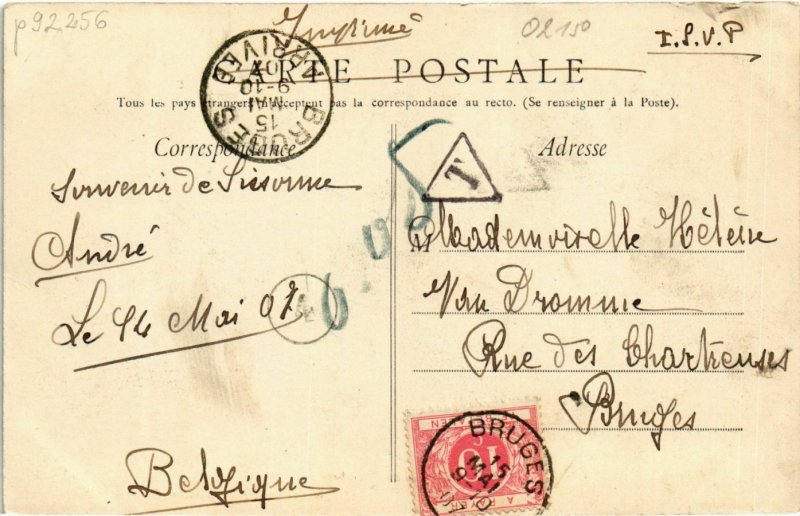 p92256
Imprimé
02150
T.S.V.P
CARTE POSTALE
Tous les pays étrangers n'acceptent pas la correspondance au recto. (Se renseigner à la Poste).
Correspondance
Adresse
BRUGES
15
MAI
9-10
07
ARRIVEE
T
Souvenir de Sissonne
André
Le 14 Mai 07
4
Mademoiselle Hélène
Van Dromme
Rue des Chartreuses
Bruges
Belgique
BRUGES
15
MAI
9-10
10
A PAYER